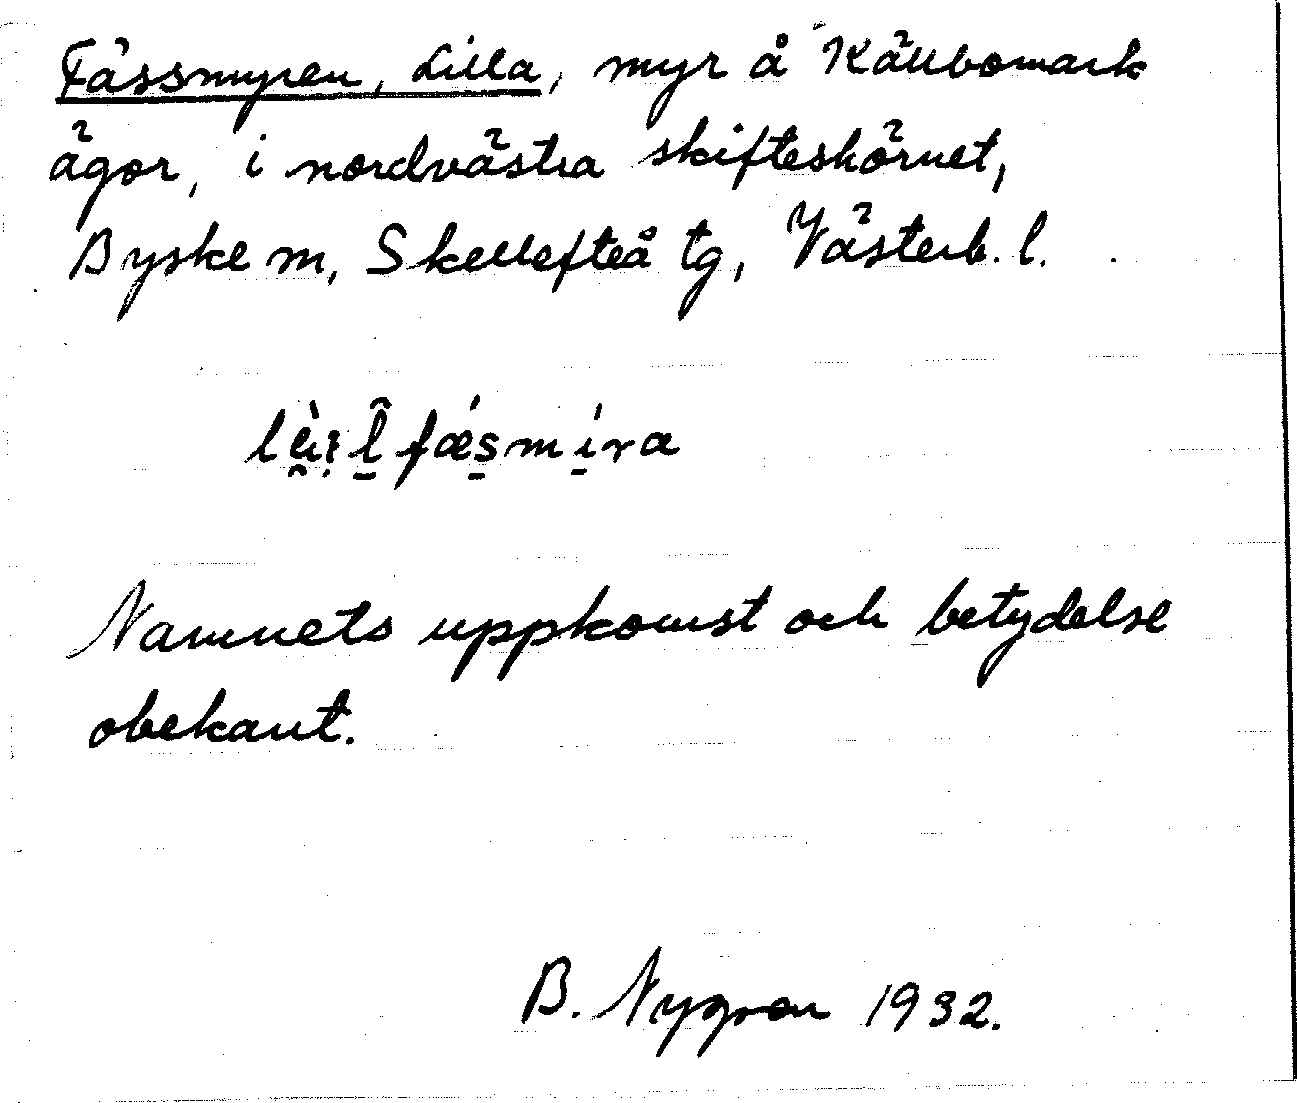 Fässmyren, Lilla, myr å Källbomark
ägor, i nordvästra skifteshörnet,
Byske sn, Skellefteå tg, Västerb. l.
Namnets uppkomst och betydelse
obekant.
B. Nygren 1932.